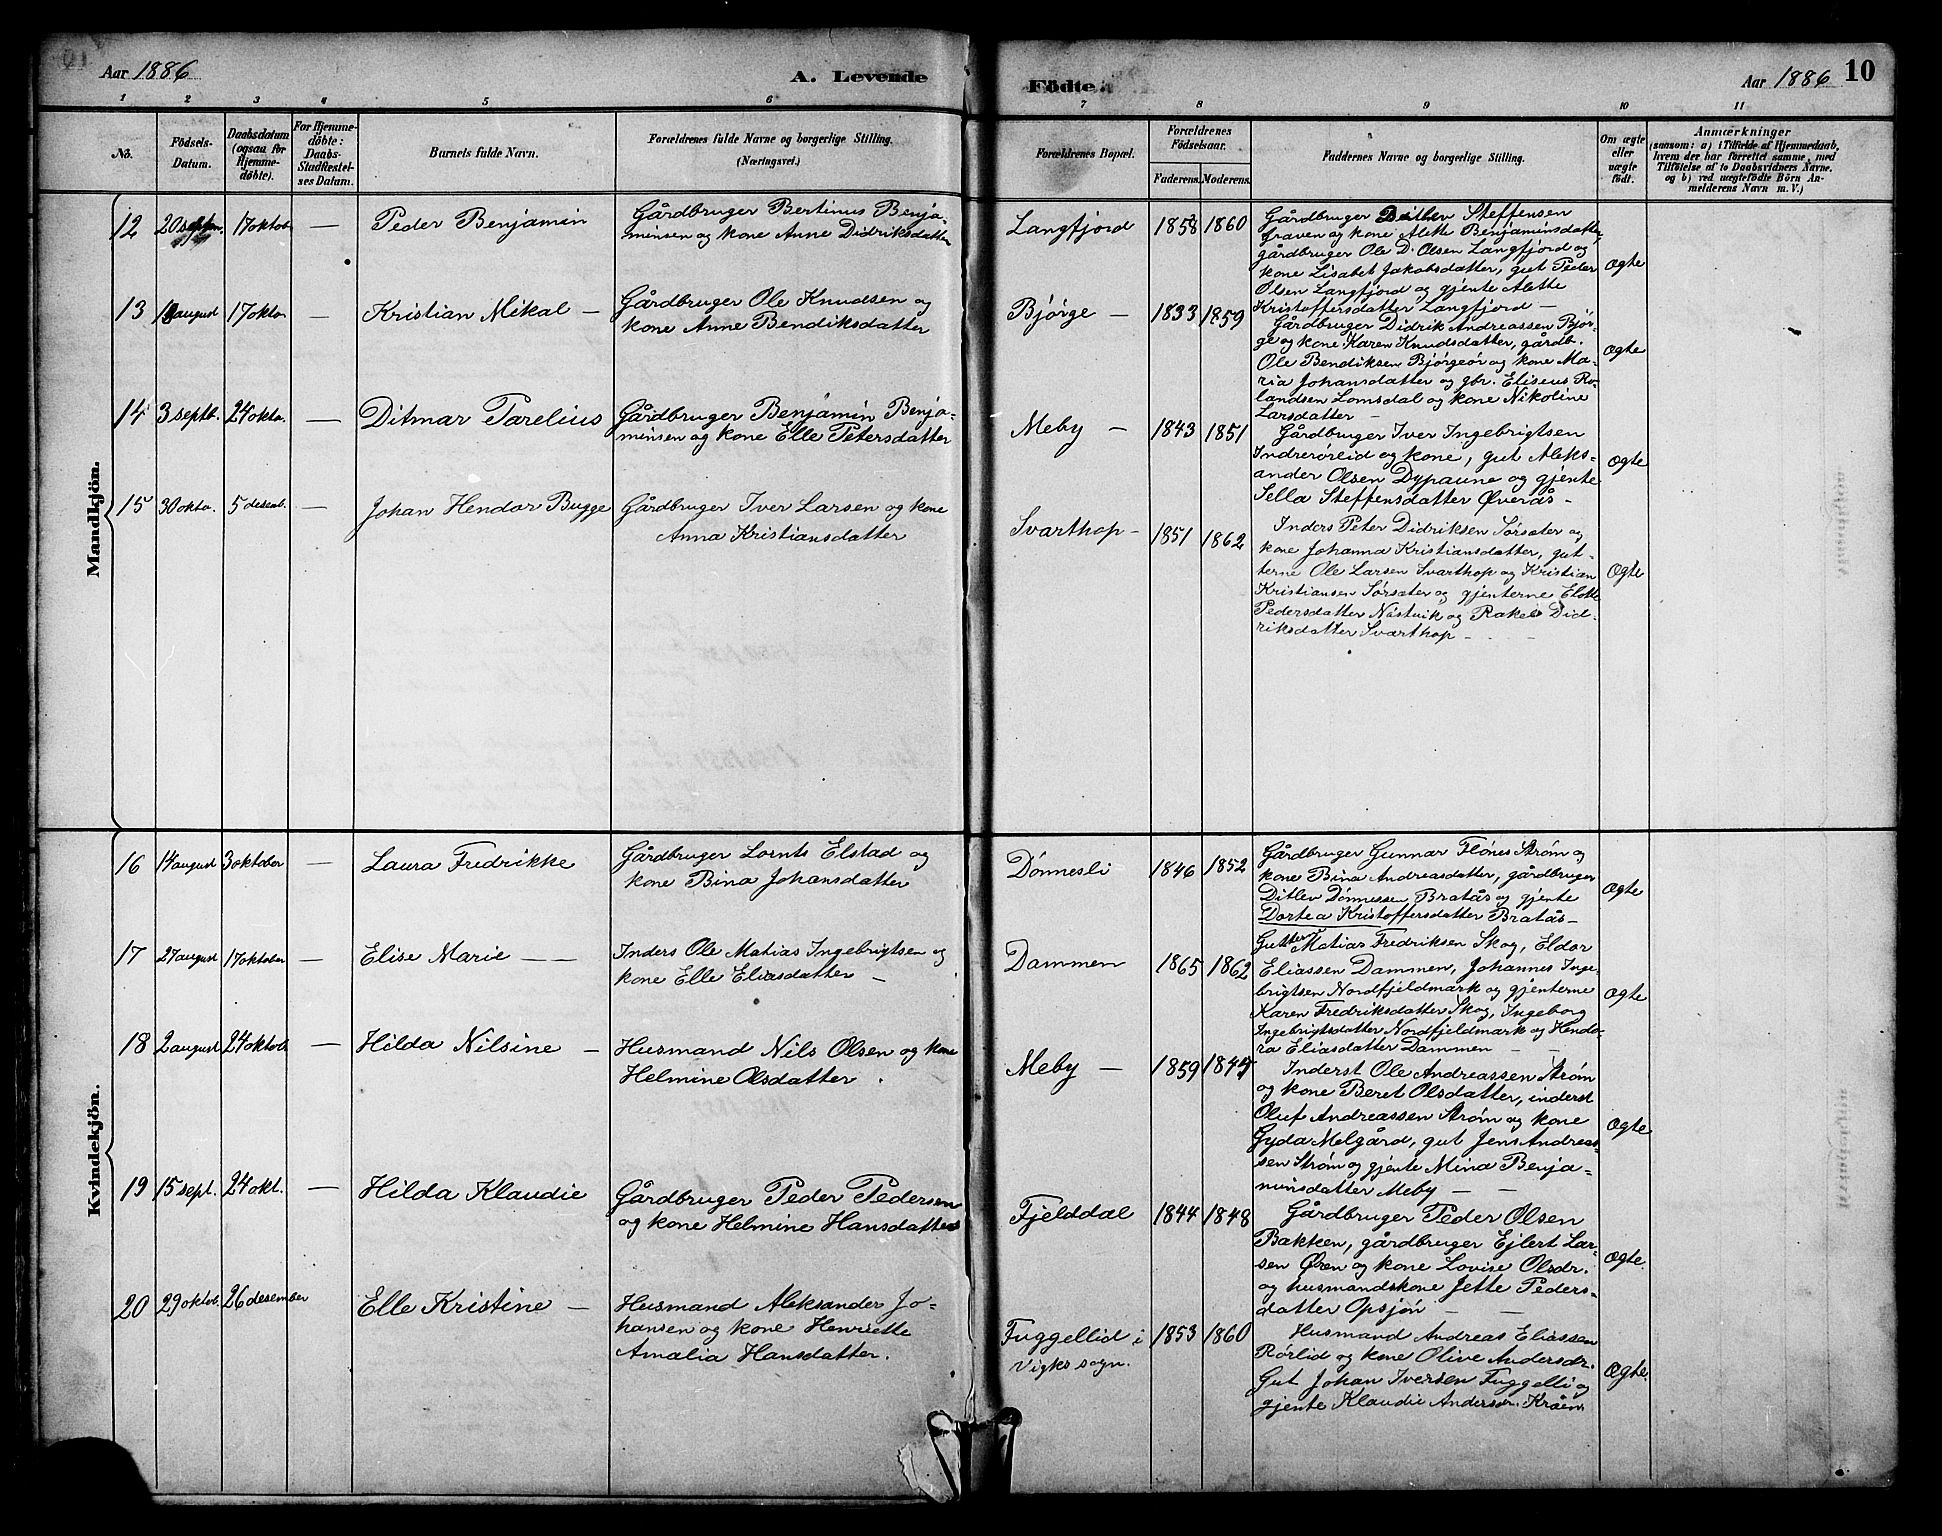 Aar 1886
A. Levende
Födte.
Aar 1886
10
1 2 3 4 5 6 7 8 9 10 11
No.
Födsels-
Datum.
Daabsdatum
(ogsaa for
Hjemme-
döbte).
For Hjemme-
döbte:
Daabs-
Stadfæstel-
ses Datum.
Barnets fulde Navn.
Forældrenes fulde Navne og borgerlige Stilling.
(Næringsvei.)
Forældrenes Bopæl.
Forældrenes
Födselsaar.
Faderens. Moderens.
Faddernes Navne og borgerlige Stilling.
Om ægte
eller
uægte
födt.
Anmærkninger
(saasom: a) i Tilfælde af Hjemmedaab,
hvem der har forrettet samme, med
Tilföielse af to Daabsvidners Navne.
og b) ved uægtefödte Börn An-
melderens Navn m. V.)
Mandkjön.
12 20 septem. 17 oktob. — Peder Benjamin
Gårdbruger Bertinus Benja-
minsen og kone Anne Didriksdatter
Langfjord 1858 1860
Gårdbruger Ditlev Steffensen
Graven og kone Alette Benjaminsdatter,
gårdbruger Ole D. Olsen Langfjord og
kone Lisabet Jakobsdatter, gut Peder
Olsen Langfjord og gjente Alette
Kristoffersdatter Langfjord —
Ægte
13 18 august 17 okto. — Kristian Mikal —
Gårdbruger Ole Knudsen og
kone Anne Bendiksdatter
Bjørge — 1833 1859
Gårdbruger Didrik Andreassen Bjør-
ge og kone Karen Knudsdatter, gårdb.
Ole Bendiksen Bjørgeør og kone Ma-
ria Johansdatter og gbr. Eliseus Ro-
landsen Lomsdal og kone Nikoline
Larsdatter —
Ægte
14 3 septb. 24 okto. — Ditmar Parelius
Gårdbruger Benjamin Benja-
minsen og kone Elle Petersdatter
Meby — 1843 1851
Gårdbruger Iver Ingebrigtsen
Indrerørlid og kone, gut Aleks-
ander Olsen Dypaune og gjente
Sella Steffensdatter Øverås —
Ægte
15 30 okto. 5 desemb. — Johan Hendor Bugge
Gårdbruger Iver Larsen og kone
Anna Kristiansdatter
Svarthop — 1851 1862
Inders Peter Didriksen Sørsæter og
kone Johanna Kristiansdatter, gut-
terne Ole Larsen Svarthop og Kristian
Kristiansen Sørsæter og gjenterne Elotte
Pedersdatter Nästvik og Rakel Did-
riksdatter Svarthop —
Ægte
Kvindekjön.
16 14 august 3 oktober — Laura Fredrikke
Gårdbruger Lornts Elstad og
kone Bina Johansdatter
Dönnesli 1846 1852
Gårdbruger Gunnar Flönes Strøm og
kone Bina Andreasdatter, gårdbruger
Ditlev Dønnessen Bratås og gjente
Dortea Kristoffersdatter Bratås —
Ægte
17 27 august 17 oktober — Elise Marie — —
Inders Ole Matias Ingebrigtsen og
kone Elle Eliasdatter —
Dammen 1865 1862
Gutter Matias Fredriksen Skog, Eldor
Eliassen Dammen, Johannes Inge-
brigtsen Nordfjeldmark og gjenterne
Karen Fredriksdatter Skog, Ingeborg
Ingebrigtsdatter Nordfjeldmark og Hendo-
ra Eliasdatter Dammen — —
Ægte
18 2 august 24 oktob. — Hilda Nilsine —
Husmand Nils Olsen og kone
Helmine Olsdatter.
Meby — 1859
Inderst Ole Andreassen Strøm
og kone Beret Olsdatter, inderst
Oluf Andreassen Strøm og kone
Gyda Melgård, gut Jens Andreas-
sen Strøm og gjente Mina Benja-
minsdatter Meby — —
Ægte
19 15 sept. 24 okt. — Hilda Klaudie
Gårdbruger Peder Pedersen
og kone Helmine Hansdatter
Fjelddal 1844 1848
Gårdbruger Peder Olsen
Bakken, gårdbruger Ejlert Lar-
sen Øren og kone Lovise Olsdr.
og husmandskone Jette Peders-
datter Opsjøn — —
Ægte.
20 29 oktob. 26 desember Elle Kristine —
Husmand Aleksander Jo-
hansen og kone Henriette
Amalia Hansdatter.
Fuggellid i
Viks sogn.
1853 1860
Husmand Andreas Eliassen
Rørlid og kone Olive Andersdr.
Gut Johan Iversen Fuggelli og
gjente Klaudie Andersdr. Kråen
Ægte.